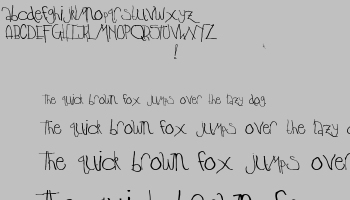 abcdefghijklmnopqrstuvwxyz
ABCDEFGHIJKLMNOPQRSTUVWXYZ
!
The quick brown fox jumps over the lazy dog
The quick brown fox jumps over the lazy d
The quick brown fox jumps over
The quick brown fox